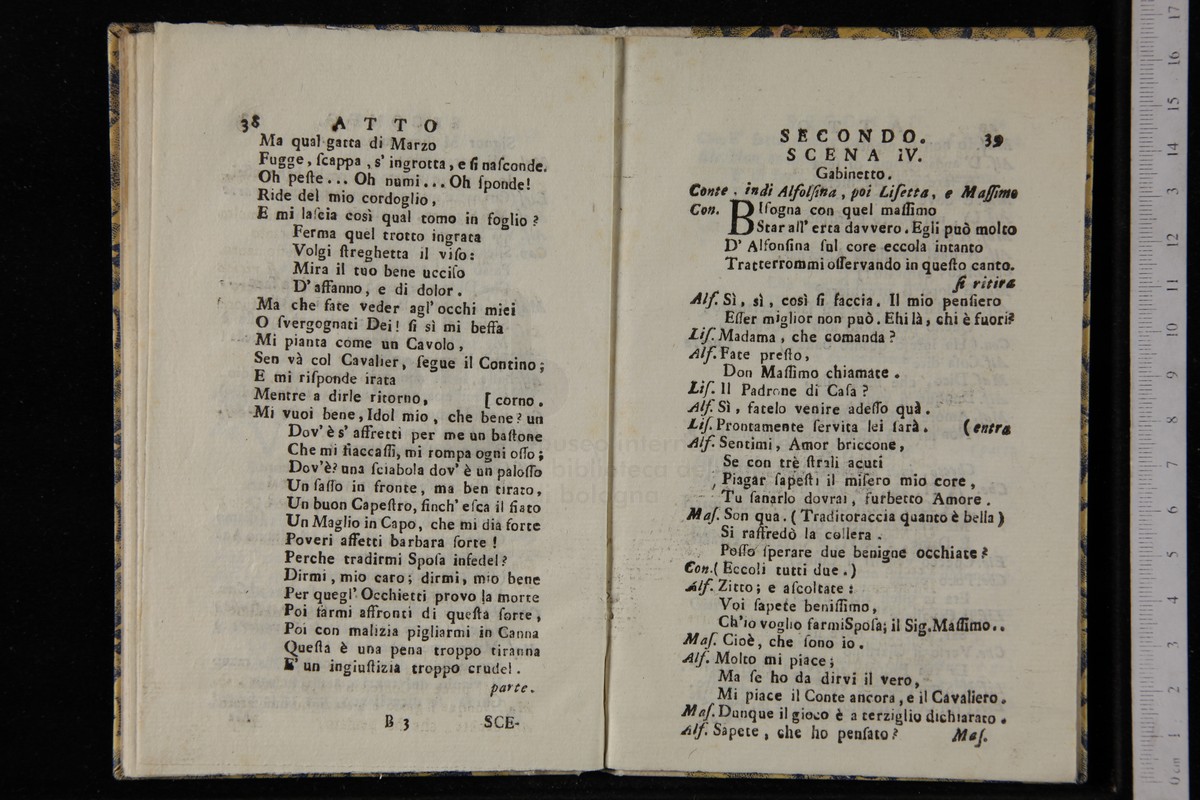 38 ATTO
Ma qual gatta di Marzo
Fugge, ſcappa, s' ingrotta, e ſi naſconde.
Oh peſte... Oh numi... Oh ſponde!
Ride del mio cordoglio,
E mi laſcia così qual tomo in foglio?
Ferma quel trotto ingrata
Volgi ſtreghetta il viſo:
Mira il tuo bene ucciſo
D'affanno, e di dolor.
Ma che fate veder agl'occhi miei
O ſvergognati Dei! ſi sì mi beffa
Mi pianta come un Cavolo,
Sen và col Cavalier, ſegue il Contino;
E mi riſponde irata
Mentre a dirle ritorno, [corno.
Mi vuoi bene, Idol mio, che bene? un
Dov' è s' affretti per me un baſtone
Che mi fiaccaſſi, mi rompa ogni oſſo;
Dov'è? una ſciabola dov' è un paloſſo
Un ſaſſo in fronte, ma ben tirato,
Un buon Capeſtro, finch' eſca il fiato
Un Maglio in Capo, che mi dia forte
Poveri affetti barbara ſorte!
Perche tradirmi Spoſa infedel?
Dirmi, mio caro; dirmi, mio bene
Per quegl' Occhietti provo la morte
Poi farmi affronti di queſta ſorte,
Poi con malizia pigliarmi in Canna
Queſta è una pena troppo tiranna
E' un ingiuſtizia troppo crudel.
parte.
B 3 SCE-
SECONDO. 39
SCENA IV.
Gabinetto.
Conte. indi Alfolſina, poi Liſetta, e Maſſimo
Con. BIſogna con quel maſſimo
Star all' erta davvero. Egli può molto
D' Alfonſina ſul core eccola intanto
Tratterrommi oſſervando in queſto canto.
ſi ritira
Alf. Sì, sì, così ſi faccia. Il mio penſiero
Eſſer miglior non può. Ehi là, chi è fuori?
Liſ. Madama, che comanda?
Alf. Fate preſto,
Don Maſſimo chiamate.
Liſ. Il Padrone di Caſa?
Alf. Sì, fatelo venire adeſſo quà.
Liſ. Prontamente ſervita lei ſarà. (entra
Alf. Sentimi, Amor briccone,
Se con trè ſtrali acuti
Piagar ſapeſti il miſero mio core,
Tu ſanarlo dovrai, furbetto Amore.
Maſ. Son qua. (Traditoraccia quanto è bella)
Si raffredò la collera.
Poſſo ſperare due benigne occhiate?
Con. (Eccoli tutti due.)
Alf. Zitto; e aſcoltate:
Voi ſapete beniſſimo,
Ch'io voglio farmiSpoſa; il Sig.Maſſimo..
Maſ. Cioè, che ſono io.
Alf. Molto mi piace;
Ma ſe ho da dirvi il vero,
Mi piace il Conte ancora, e il Cavaliero.
Maſ. Dunque il gioco è a terziglio dichiarato.
Alf. Sapete, che ho penſato? Maſ.